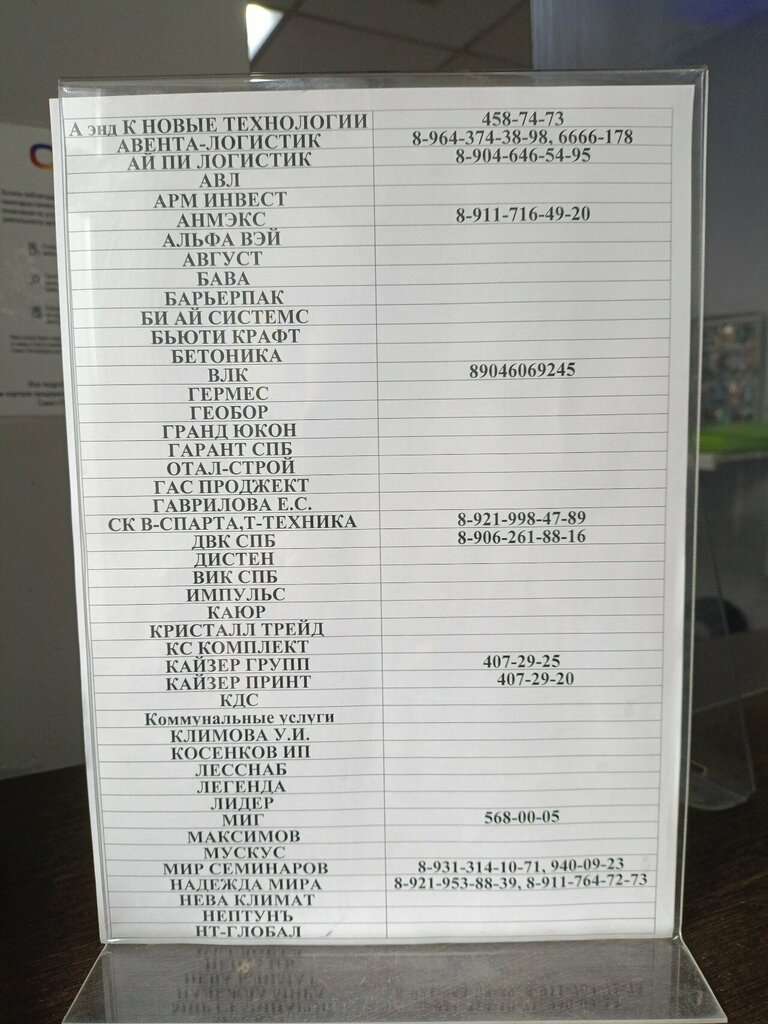 А энд К НОВЫЕ ТЕХНОЛОГИИ 458-74-73
АВЕНТА-ЛОГИСТИК 8-964-374-38-98, 6666-178
АЙ ПИ ЛОГИСТИК 8-904-646-54-95
АВЛ
АРМ ИНВЕСТ
АНМЭКС 8-911-716-49-20
АЛЬФА ВЭЙ
АВГУСТ
БАВА
БАРЬЕРПАК
БИ АЙ СИСТЕМС
БЬЮТИ КРАФТ
БЕТОНИКА
ВЛК 89046069245
ГЕРМЕС
ГЕОБОР
ГРАНД ЮКОН
ГАРАНТ СПБ
ОТАЛ-СТРОЙ
ГАС ПРОДЖЕКТ
ГАВРИЛОВА Е.С.
СК В-СПАРТА,Т-ТЕХНИКА 8-921-998-47-89
ДВК СПБ 8-906-261-88-16
ДИСТЕН
ВИК СПБ
ИМПУЛЬС
КАЮР
КРИСТАЛЛ ТРЕЙД
КС КОМПЛЕКТ
КАЙЗЕР ГРУПП 407-29-25
КАЙЗЕР ПРИНТ 407-29-20
КДС
Коммунальные услуги
КЛИМОВА У.И.
КОСЕНКОВ ИП
ЛЕССНАБ
ЛЕГЕНДА
ЛИДЕР
МИГ 568-00-05
МАКСИМОВ
МУСКУС
МИР СЕМИНАРОВ 8-931-314-10-71, 940-09-23
НАДЕЖДА МИРА 8-921-953-88-39, 8-911-764-72-73
НЕВА КЛИМАТ
НЕПТУНЪ
НТ-ГЛОБАЛ